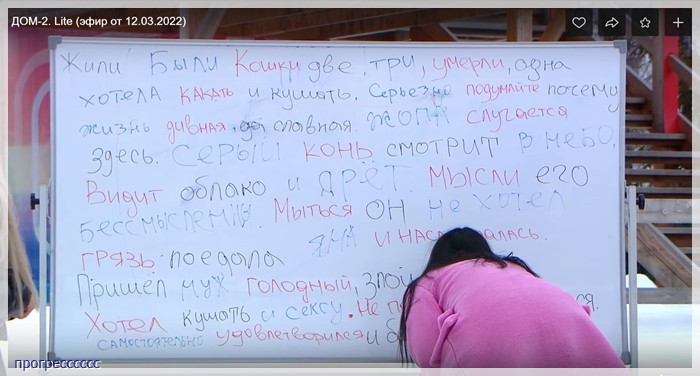 ДОМ-2. Lite (эфир от 12.03.2022)
Жили Были Кошки две, три, умерли, одна
хотела какать и кушать. Серьезно подумайте почему
жизнь дивная да славная. жопа случается
здесь. СЕРЫЙ КОНЬ смотрит в небо.
Видит облако и орёт. Мысли его
бессмысленны. Мыться он не хотел
грязь поедала яма и
Пришёл муж голодный, злой
Хотел кушать и сексу. Не
самостоятельно удовлетворился и
прогрессссссс